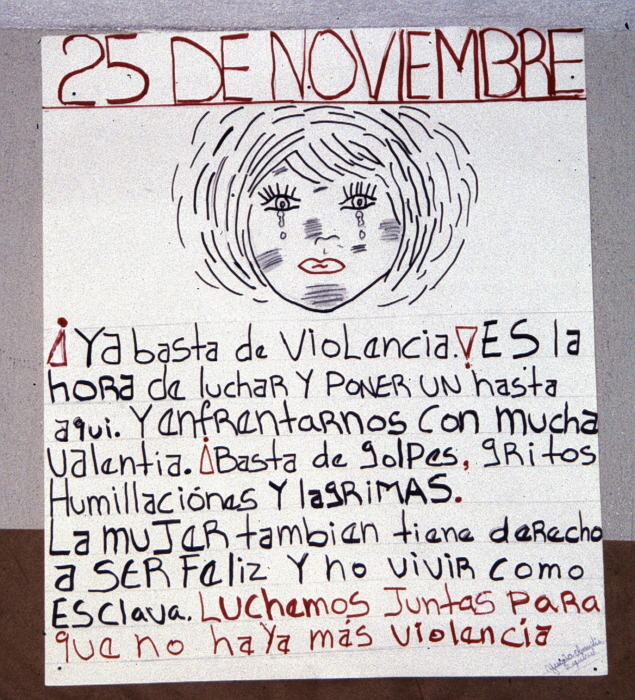 25 DE NOVIEMBRE
¡Ya basta de Violencia.! ES la
hora de luchar Y PONER UN hasta
aqui. Y enfrentarnos con mucha
Valentia. ¡Basta de golpes, gritos
Humillaciónes Y lagRiMAS.
La muJeR tambien tiene derecho
a SER Feliz Y no vivir como
Esclava. Luchemos Juntas para
que no haYa más violencia